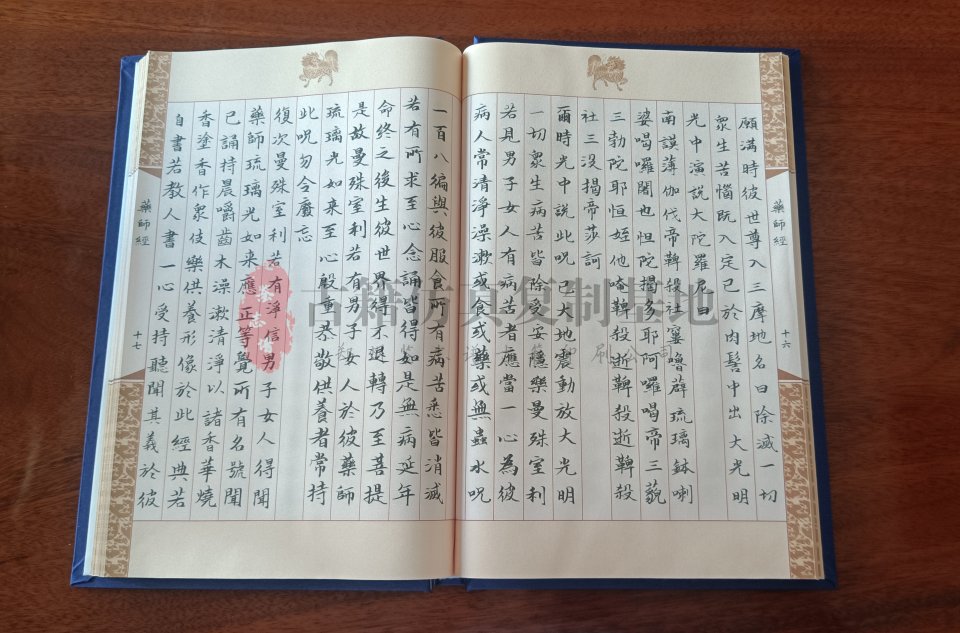 藥師經
十六
願滿時彼世尊入三摩地名曰除滅一切
衆生苦惱既入定已於肉髻中出大光明
光中演說大陀羅尼曰
南謨薄伽伐帝鞞殺社窶嚕薜琉璃鉢喇
婆喝囉闍也怛陀揭多耶阿囉喝帝三藐
三勃陀耶怛姪他唵鞞殺逝鞞殺逝鞞殺
社三沒揭帝莎訶
爾時光中說此呪已大地震動放大光明
一切衆生病苦皆除受安隱樂曼殊室利
若見男子女人有病苦者應當一心為彼
病人常清淨澡漱或食或藥或無蟲水呪
一百八編與彼服食所有病苦悉皆消滅
若有所求至心念誦皆得如是無病延年
命終之後生彼世界得不退轉乃至菩提
是故曼殊室利若有男子女人於彼藥師
琉璃光如来至心殷重恭敬供養者常持
此呪勿令廢忘
復次曼殊室利若有淨信男子女人得聞
藥師琉璃光如来應正等覺所有名號聞
已誦持晨嚼齒木澡漱清淨以諸香華燒
香塗香作衆伎樂供養形像於此經典若
自書若教人書一心受持聽聞其義於彼
藥師經
十七
古籍仿真复制基地